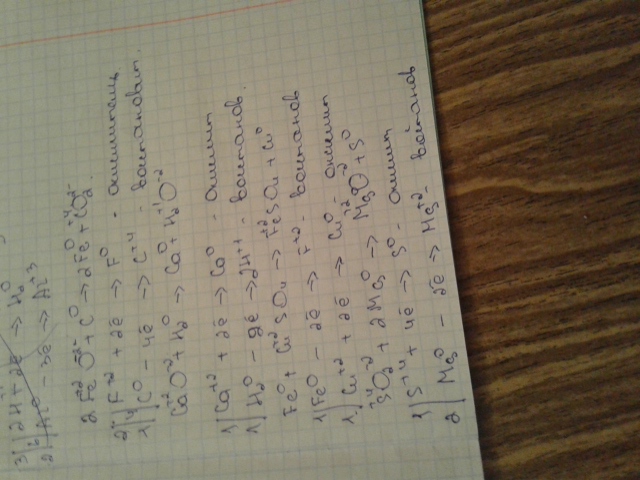 3 | 2H⁺¹ + 2ē → H₂⁰
2 | Al⁰ - 3ē → Al⁺³
2Fe⁺²O⁻² + C⁰ → 2Fe⁰ + C⁺⁴O₂⁻²
2 | F⁺² + 2ē → F⁰ - окислитель
1 | C⁰ - 4ē → C⁺⁴ - восстановит.
Ca⁺²O⁻² + H₂⁰ → Ca⁰ + H₂⁺¹O⁻²
1 | Ca⁺² + 2ē → Ca⁰ - окислит
1 | H₂⁰ - 2ē → 2H⁺¹ - восстанов.
Fe⁰ + Cu⁺²SO₄ → Fe⁺²SO₄ + Cu⁰
1 | Fe⁰ - 2ē → F⁺² - восстанов
1 | Cu⁺² + 2ē → Cu⁰ - окислит
S⁺⁴O₂⁻² + 2Mg⁰ → Mg⁺²O⁻² + S⁰
1 | S⁺⁴ + 4ē → S⁰ - окислит
2 | Mg⁰ - 2ē → Mg⁺² - восстанов